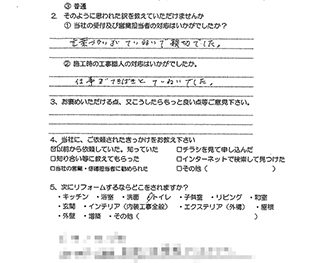 ③ 普通
2. そのように思われた訳を教えていただけませんか
① 当社の受付及び営業担当者の対応はいかがでしたか?
言葉づかいがていねいで親切でした。
② 施工時の工事職人の対応はいかがでしたか。
仕事がてきぱきと ていねいでした。
3、お褒めいただける点、又こうしたらもっと良い点等ご意見下さい。
4、当社に、ご依頼されたきっかけをお教え下さい
☑以前から依頼していた。知っていた □チラシを見て申し込んだ
□知り合い等に教えてもらった □インターネットで検索して見つけた
□当社の営業・修繕担当者に勧められた □その他( )
5、次にリフォームするならどこをされますか?
・キッチン ・浴室 ・洗面 ・トイレ ・子供室 ・リビング ・和室
・玄関 ・インテリア(内装工事全般) ・エクステリア(外構) ・屋根
・外壁 ・増築 ・その他( )